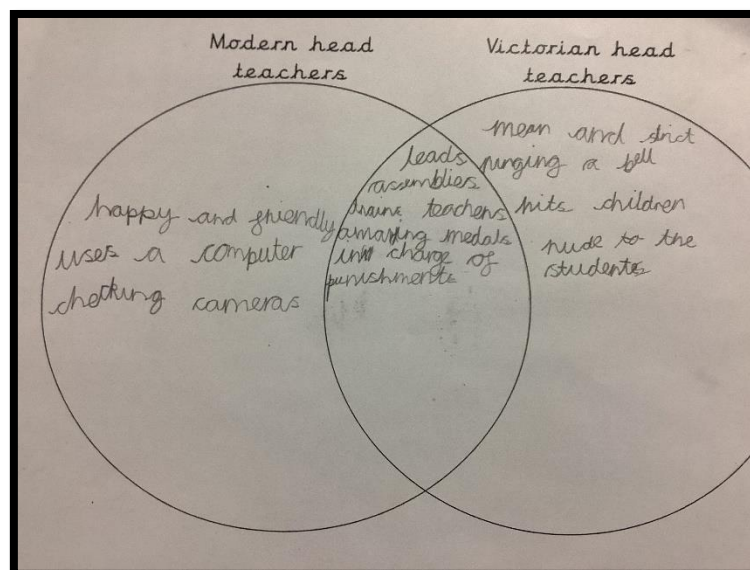 Modern head
teachers
Victorian head
teachers
happy and friendly
uses a computer
checking cameras
leads
assemblies
trains teachers
amazing medals
in charge of
punishments
mean and strict
ringing a bell
hits children
rude to the
students